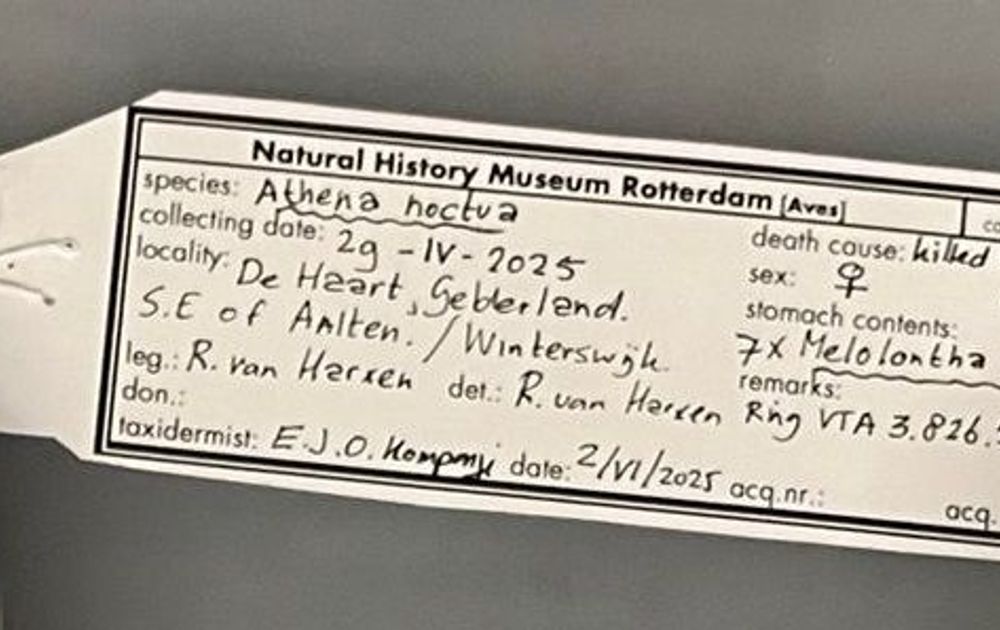 Natural History Museum Rotterdam (Aves)
species: Athena noctua
collecting date: 29 - IV - 2025
locality: De Haart, Gelderland.
S.E of Aalten. / Winterswijk.
leg.: R. van Harxen det.: R. van Harxen
don.:
taxidermist: E.J.O. Kompanje date: 2/VI/2025 acq.nr.:
death cause: killed
sex: ♀
stomach contents:
7x Melolontha
remarks:
Ring VTA 3.826.
acq.